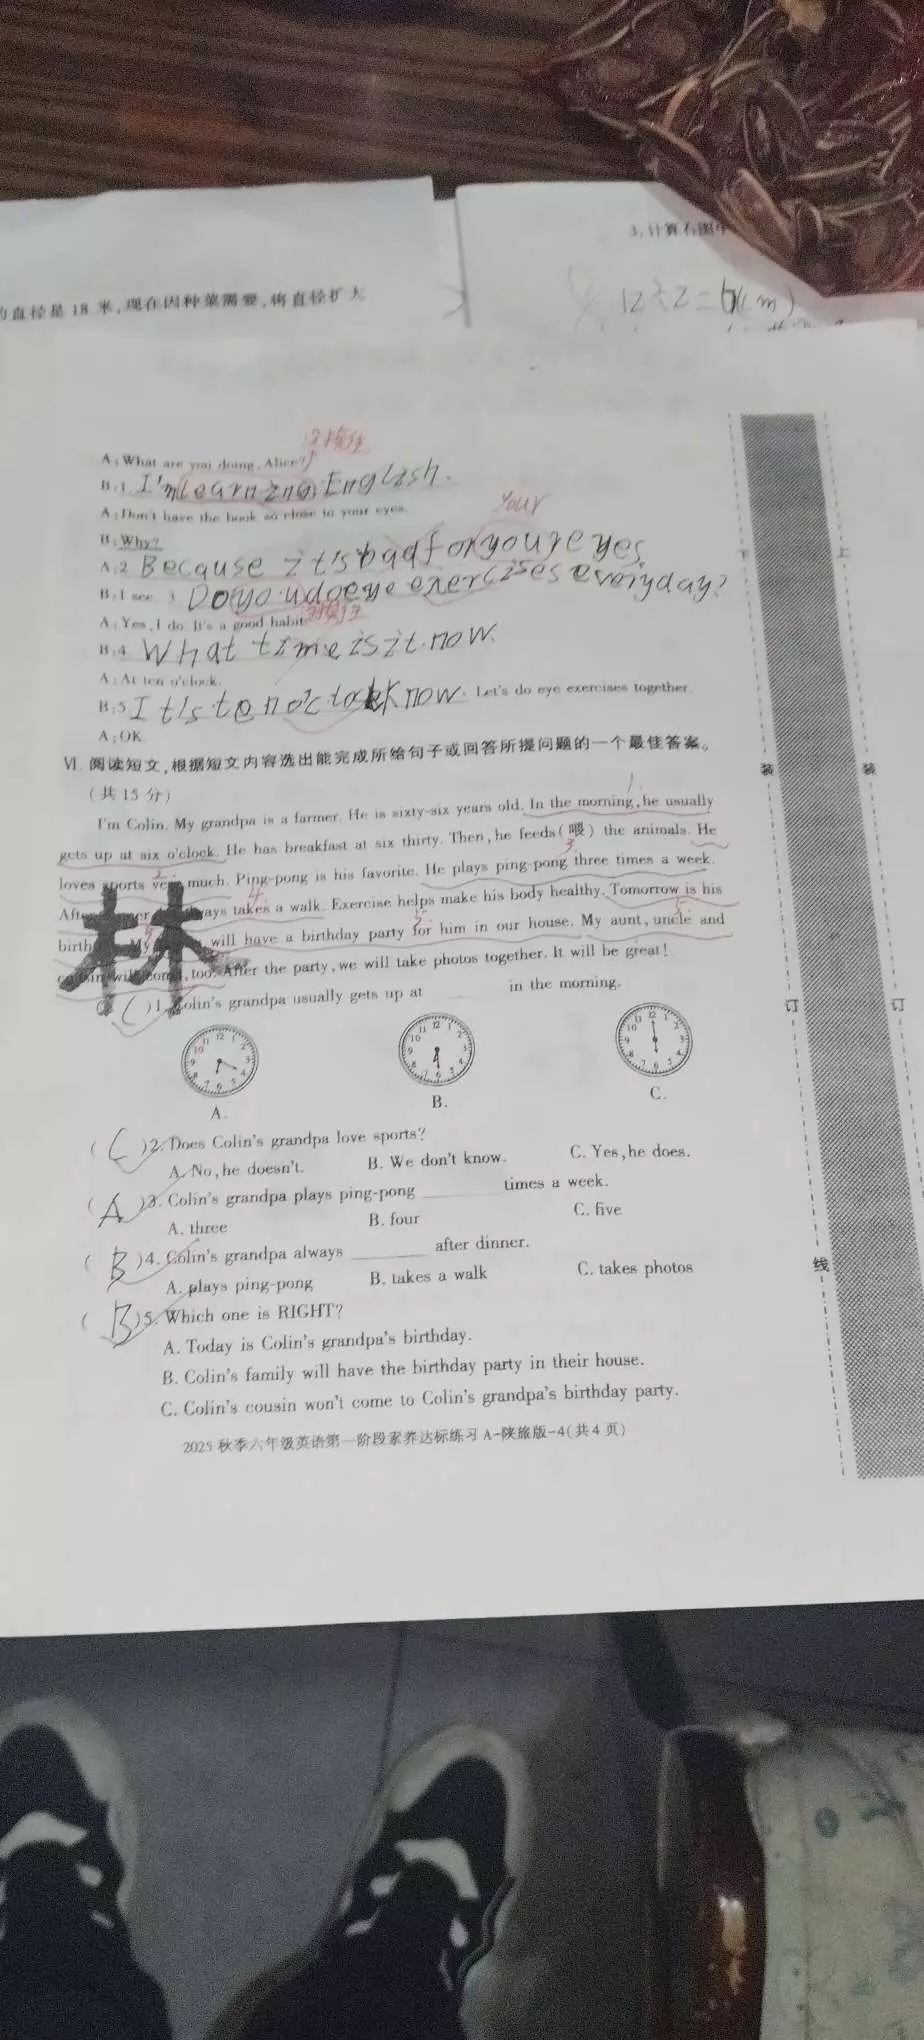 3.计算右图
的直径是 18 米,现在因种菜需要,将直径扩大
12÷2=6(cm)
A:What are you doing, Alice?
B:1. I'm learning English.
A:Don't have the book so close to your eyes.
your
B:Why?
A:2 Because it's bad for youreyes
B:I see. 3. Do you do eye exercises everyday?
A:Yes, I do. It's a good habit.
B:4. What time is it now.
A:At ten o'clock.
B:5 It's ten o'clock now. Let's do eye exercises together.
A:OK.
Ⅵ. 阅读短文,根据短文内容选出能完成所给句子或回答所提问题的一个最佳答案。
(共 15 分)
1
I'm Colin. My grandpa is a farmer. He is sixty-six years old. In the morning, he usually
gets up at six o'clock. He has breakfast at six thirty. Then, he feeds(喂) the animals. He
2 3
loves sports very much. Ping-pong is his favorite. He plays ping-pong three times a week.
4
takes a walk. Exercise helps make his body healthy. Tomorrow is his
5 5 5
birth will have a birthday party for him in our house. My aunt, uncle and
林
too. After the party, we will take photos together. It will be great!
( C )1. Colin's grandpa usually gets up at ____ in the morning.
A. B. C.
( C )2. Does Colin's grandpa love sports?
A. No, he doesn't. B. We don't know. C. Yes, he does.
( A )3. Colin's grandpa plays ping-pong ____ times a week.
A. three B. four C. five
( B )4. Colin's grandpa always ____ after dinner.
A. plays ping-pong B. takes a walk C. takes photos
( B )5. Which one is RIGHT?
A. Today is Colin's grandpa's birthday.
B. Colin's family will have the birthday party in their house.
C. Colin's cousin won't come to Colin's grandpa's birthday party.
2025 秋季六年级英语第一阶段素养达标练习 A-陕旅版-4(共 4 页)
下
上
装
装
订
订
线